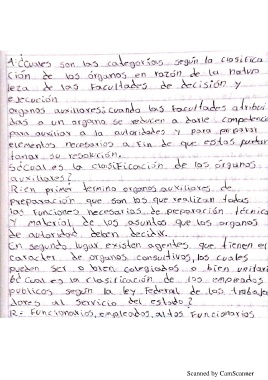 4.Cuales son las categorías según la clasifica
ción de los órganos en razón de la natura
leza de las facultades de decisión y
ejecución
órganos auxiliares: cuando las facultades atribui
das a un organo se reducen a darle competencia
para auxiliar a la autoridades y para preparar
elementos necesarios a fin de que estas puedan
tomar su resolución.
5.Cual es la clasificación de los órganos
auxiliares?
R: en primer termino organos auxiliares de
preparación que son los que realizan todas
las funciones necesarias de preparación técnica
y material de los asuntos que los organos
de autoridad deben decidir.
En segundo lugar existen agentes que tienen el
caracter de organos consultivos, los cuales
pueden ser o bien colegiados o bien unitarios
6. Cual es la clasificación de los empleados
publicos según la ley Federal de los trabaja
dores al servicio del estado?
R= Funcionarios, empleados, altos Funcionarios
Scanned by CamScanner